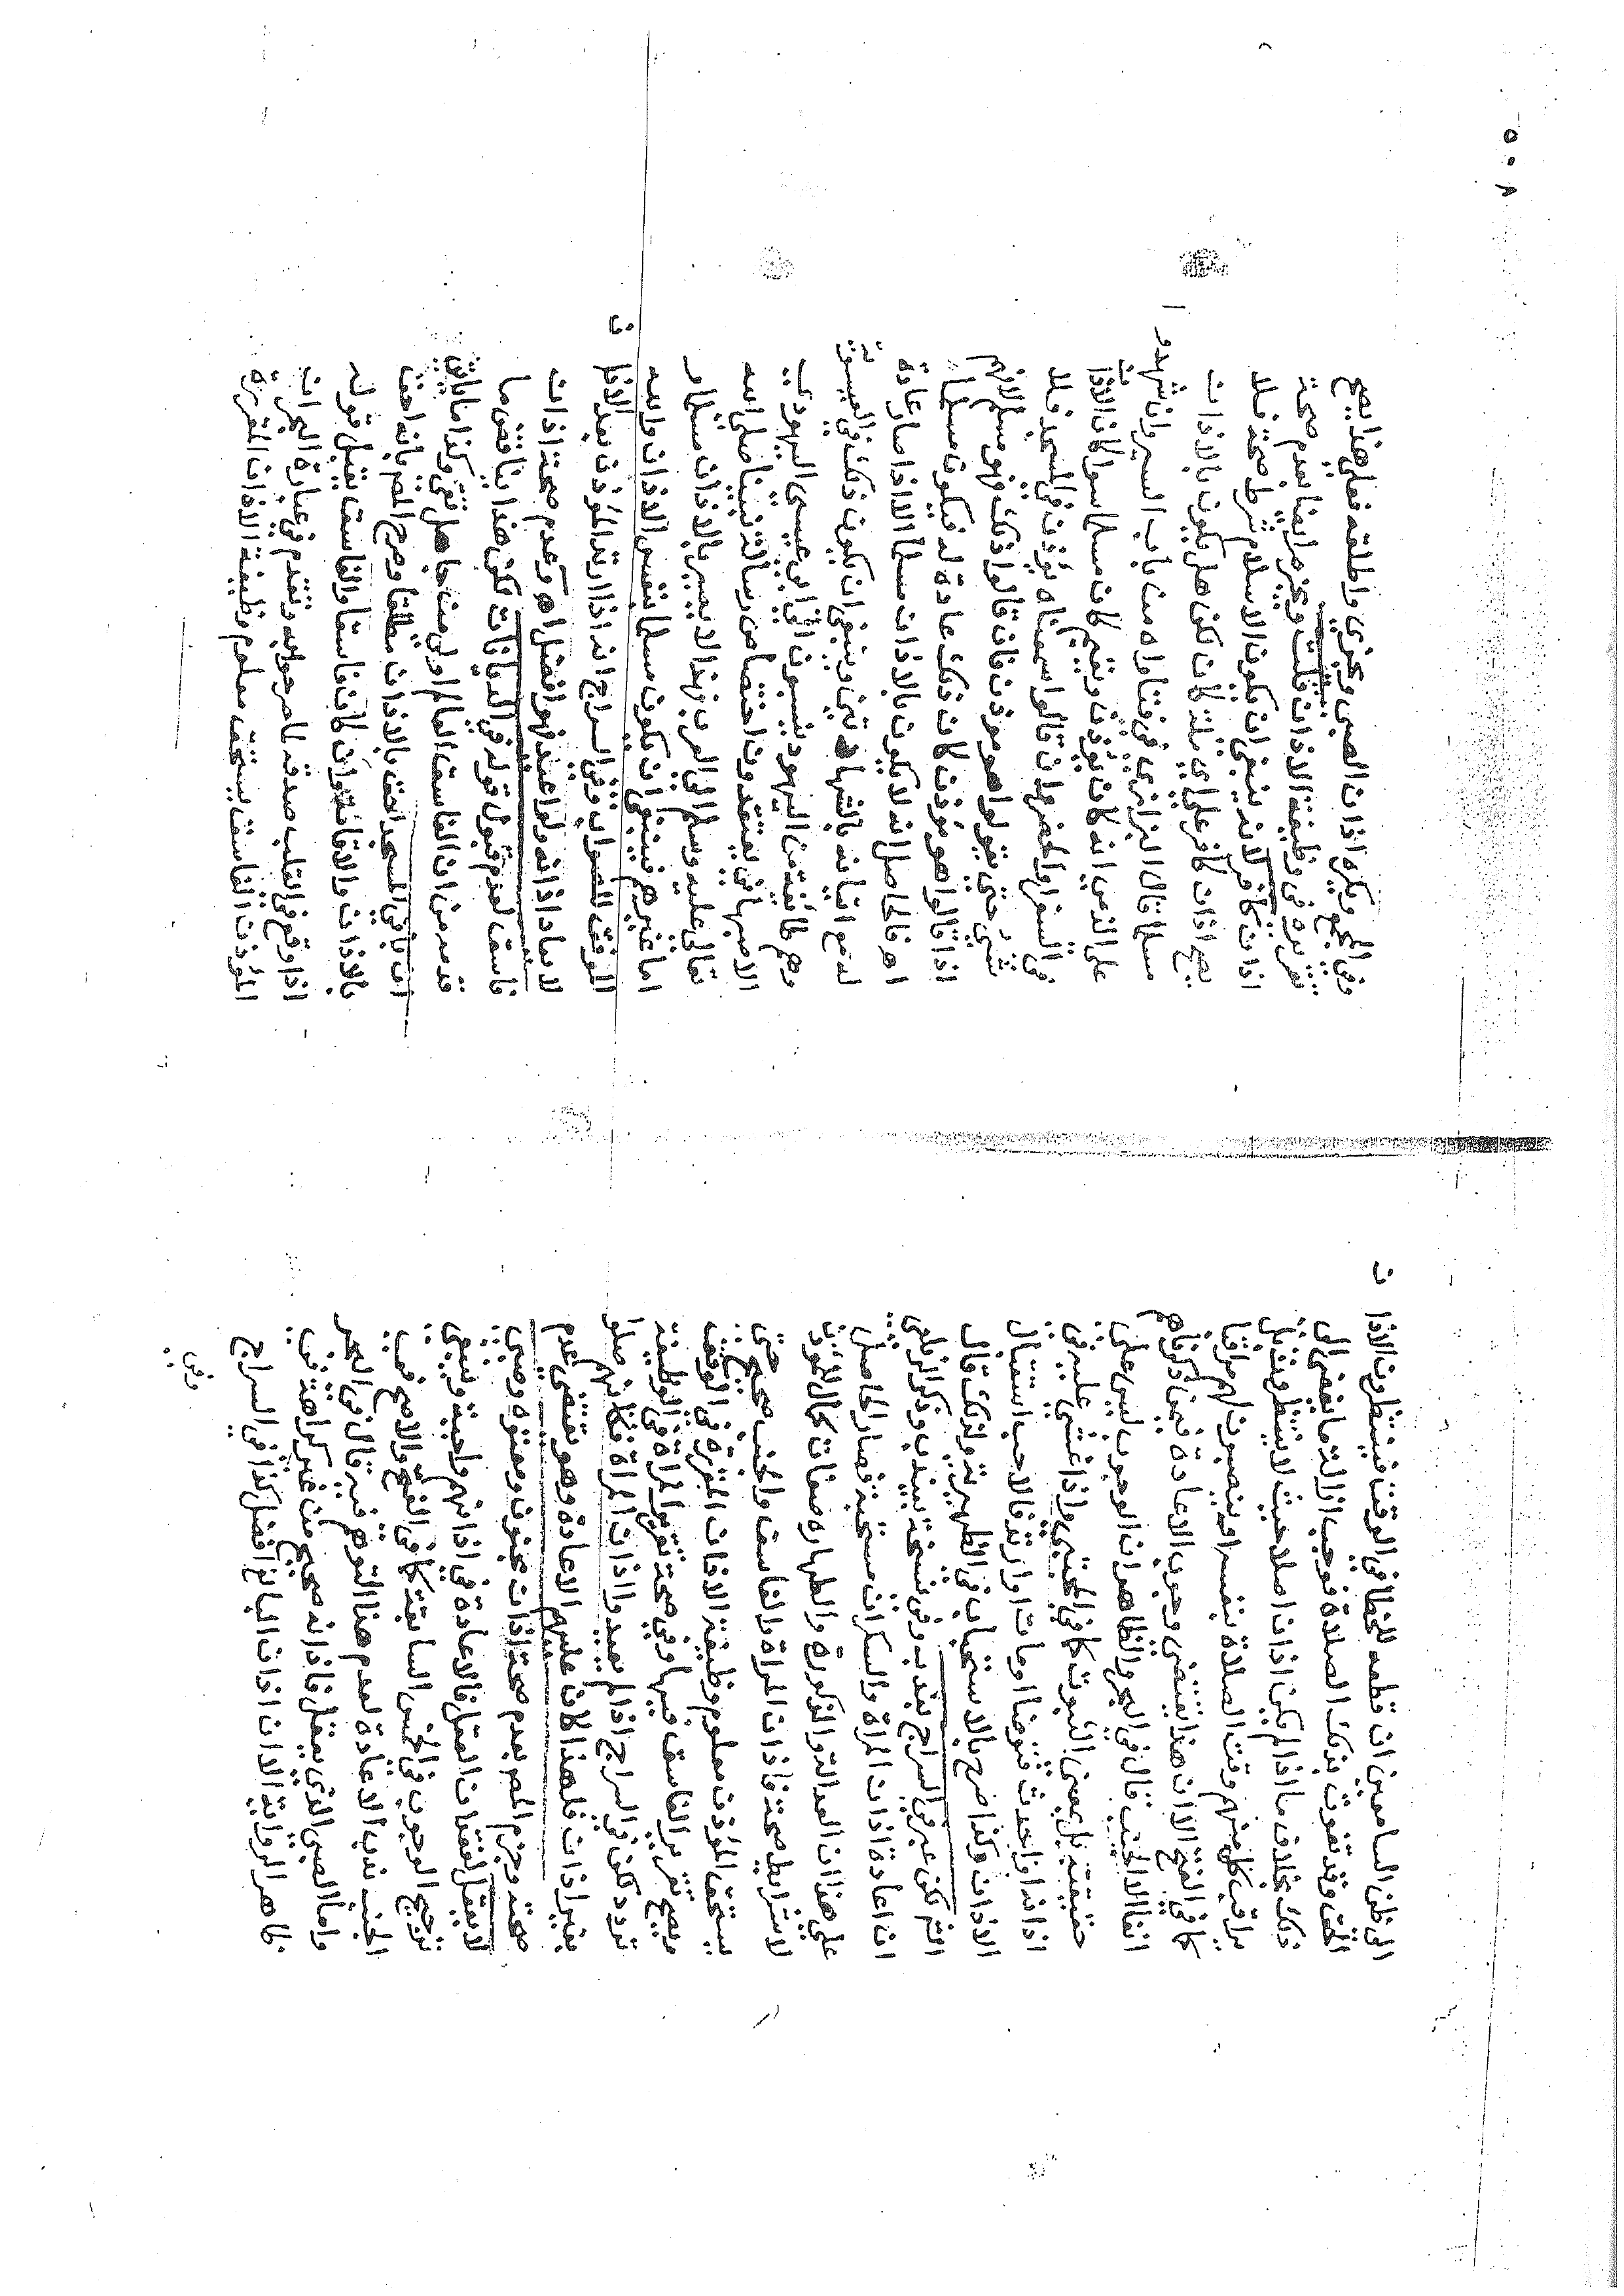 ٥٠٨
الى ظن السامعين ان قطعه للخطا في الوقت فينتظرون الاذان
الحق وقد تفوت بذلك الصلاة فوجب ازالة ما يفضي الى
ذلك بخلاف ما اذا لم يكن اذان اصلا حيث لا ينتظرون بل
يراقب كل منهم وقت الصلاة بنفسه او ينصبون لهم مراقبا
كما في الفتح الا ان هذا يقتضي وجوب الاعادة فيمن ذكرناهم
انفا الا الجنب قال في البحر والظاهر ان الوجوب ليس على
حقيقته بل بمعنى الثبوت كما في المجتبى واذا غشي عليه في
اذانه او احدث فتوضا او مات او ارتد فالاحب استقبال
الاذان وكذا صرح بالاستحباب في الظهيرية ولذلك قال
لكن عبر في السراج بندب وفي نسخة بيندب وذكر الزيلعي
ان اعادة اذان المراة والسكران مستحبة فصار الحاصل
على هذا ان العدالة والذكورة والطهارة صفات كمال للمؤذن
لا شرايط صحة فاذان المراة والفاسق والجنب صحيح حتى
يستحق المؤذن معلوم وظيفة الاذان المقررة في الوقف
ويصح تقرير الفاسق فيها وفي صحة تقرير المراة في الوظيفة
تردد لكن في السراج اذا لم يعيدوا اذان المراة فكانهم صلوا
بغير اذان فلهذا كان عليهم الاعادة وهو يقتضي عدم
صحته وجزم المصـ بعدم صحة اذان مجنون ومعتوه وصبي
لا يعقل لفقدان العقل فالاعادة في اذانهم واجبة وينبغي
ترجيح الوجوب في الخمس السابقة كما في الفتح والاصح في
الجنب ندب الاعادة لعدم هذا التوهم فيه قال في البحر
واما الصبي الذي يعقل فاذانه صحيح من غير كراهة في
ظاهر الرواية الا ان اذان البالغ افضل كذا في السراج
وفي
وفي المجمع ويكره اذان الصبي ويجزي واطلقه فعلى هذا يصح
تقريره في وظيفة الاذان قلت ويجزم ايضا بعدم صحة
اذان كافر لانه ينبغي ان يكون الاسلام شرط صحة فلا
يصح اذان كافر على اي ملة كان لكن هل يكون بالاذان
مسلما قال البزازي في فتاواه من باب السير وان شهدوا
على الذمي انه كان يؤذن ويقيم كان مسلما سوا كان الاذان
في السفر او الحضر وان قالوا سمعناه يؤذن في المسجد فلا
شي حتى يقولوا هو مؤذن فان قالوا ذلك فهو مسلم لانهم
اذا قالوا هو مؤذن كان ذلك عادة له فيكون مسلما
اه فالحاصل انه لا يكون بالاذان مسلما الا اذا صار عادة
له مع اتيانه بالشهادتين وينبغي ان يكون ذلك في العيسوية
وهم طائفة من اليهود ينسبون الى ابي عيسى اليهودي
الاصبهاني يعتقدون اختصاص رسالة نبينا صلى الله
تعالى عليه وسلم الى العرب فهذا لا يصير بالاذان مسلما و
اما غيرهم فينبغي ان يكون مسلما بنفس الاذان والله
الموفق للصواب وفي السراج انه اذا ارتد المؤذن بعد الاذان
لا يعاد اذانه ولو اعيد فهو افضل اه وعدم صحة اذان
فاسق لعدم قبول قوله في الديانات لكن هذا يناقض ما
قدمه من ان الفاسق العالم اولى من جاهل تقي وكذا ما ياتي
ان باني المسجد احق بالاذان مطلقا وصرح المصـ بانه احق
بالاذان والاقامة وان كان فاسقا والفاسق يقبل قوله
اذا وقع في القلب صدقه كما مر جوابه وتقدم في عبارة البحر ان
المؤذن الفاسق يستحق معلوم وظيفة الاذان المقررة